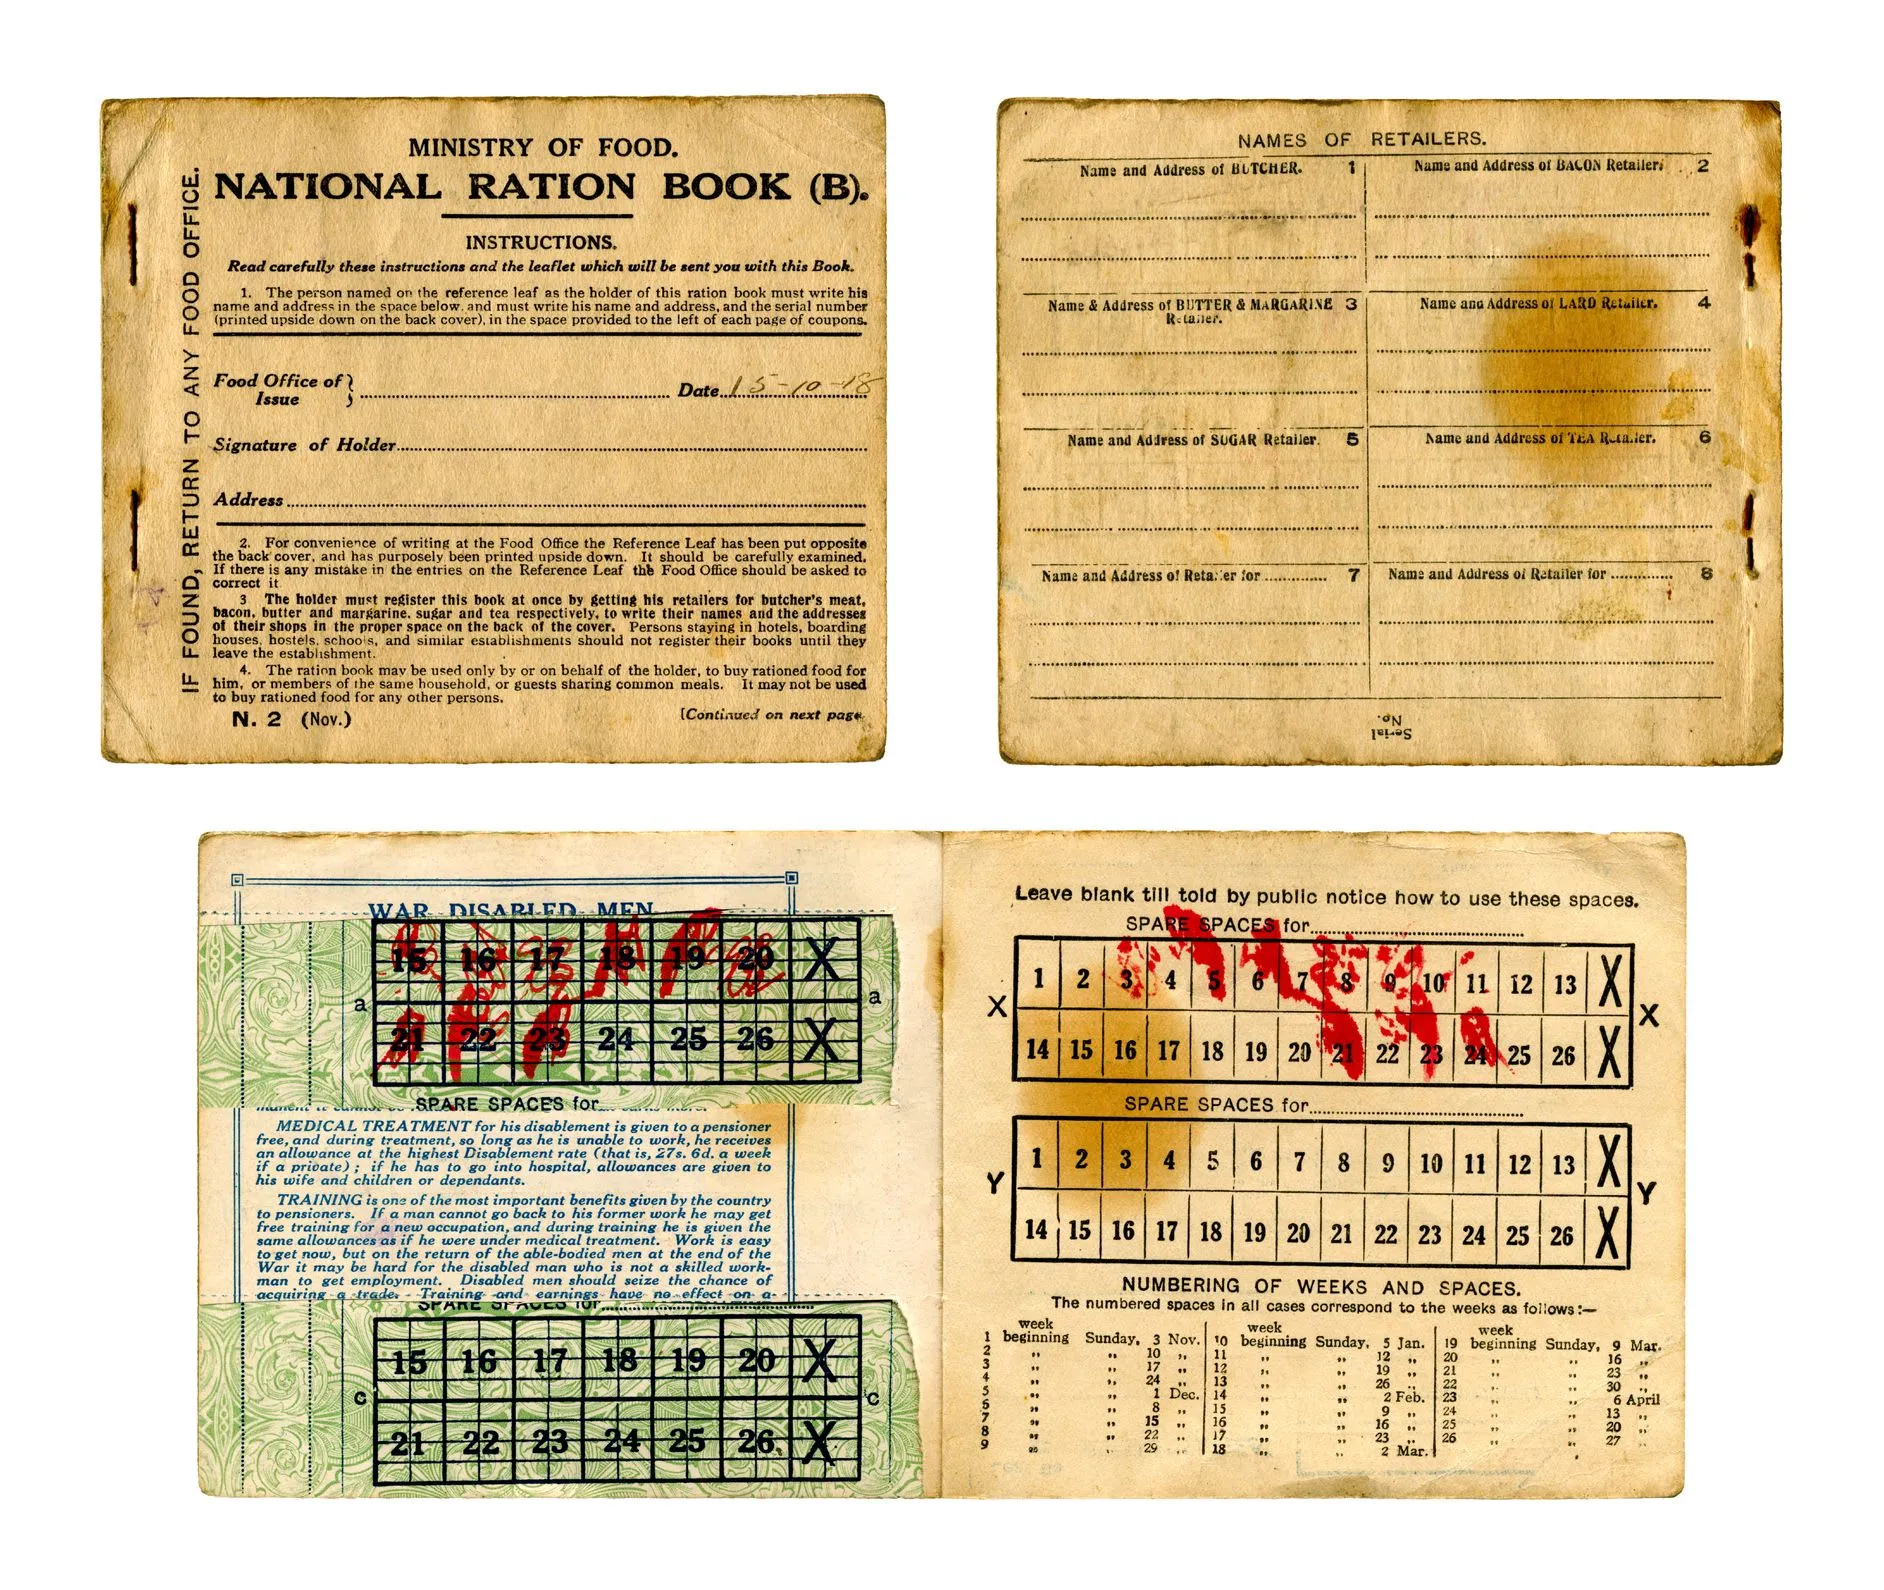 MINISTRY OF FOOD.
NATIONAL RATION BOOK (B).
INSTRUCTIONS.
Read carefully these instructions and the leaflet which will be sent you with this Book.
1. The person named on the reference leaf as the holder of this ration book must write his
name and address in the space below, and must write his name and address, and the serial number
(printed upside down on the back cover), in the space provided to the left of each page of coupons.
Food Office of Issue
Date 15-10-18
Signature of Holder
Address
2. For convenience of writing at the Food Office the Reference Leaf has been put opposite
the back cover, and has purposely been printed upside down. It should be carefully examined.
If there is any mistake in the entries on the Reference Leaf the Food Office should be asked to
correct it
3 The holder must register this book at once by getting his retailers for butcher's meat,
bacon, butter and margarine, sugar and tea respectively, to write their names and the addresses
of their shops in the proper space on the back of the cover. Persons staying in hotels, boarding
houses, hostels, schools, and similar establishments should not register their books until they
leave the establishment.
4. The ration book may be used only by or on behalf of the holder, to buy rationed food for
him, or members of the same household, or guests sharing common meals. It may not be used
to buy rationed food for any other persons.
N. 2 (Nov.)
[Continued on next page
IF FOUND, RETURN TO ANY FOOD OFFICE.
NAMES OF RETAILERS.
Name and Address of BUTCHER. 1
Name and Address of BACON Retailer. 2
Name & Address of BUTTER & MARGARINE 3
Retailer.
Name and Address of LARD Retailer. 4
Name and Address of SUGAR Retailer. 5
Name and Address of TEA Retailer. 6
Name and Address of Retailer for 7
Name and Address of Retailer for 8
Serial
No.
WAR DISABLED MEN
a 15 16 17 18 19 20 X a
21 22 23 24 25 26 X
SPARE SPACES for
MEDICAL TREATMENT for his disablement is given to a pensioner
free, and during treatment, so long as he is unable to work, he receives
an allowance at the highest Disablement rate (that is, 27s. 6d. a week
if a private) ; if he has to go into hospital, allowances are given to
his wife and children or dependants.
TRAINING is one of the most important benefits given by the country
to pensioners. If a man cannot go back to his former work he may get
free training for a new occupation, and during training he is given the
same allowances as if he were under medical treatment. Work is easy
to get now, but on the return of the able-bodied men at the end of the
War it may be hard for the disabled man who is not a skilled work-
man to get employment. Disabled men should seize the chance of
acquiring a trade. Training and earnings have no effect on a
SPARE SPACES for
c 15 16 17 18 19 20 X c
21 22 23 24 25 26 X
Leave blank till told by public notice how to use these spaces.
SPARE SPACES for
X 1 2 3 4 5 6 7 8 9 10 11 12 13 X X
14 15 16 17 18 19 20 21 22 23 24 25 26 X
SPARE SPACES for
Y 1 2 3 4 5 6 7 8 9 10 11 12 13 X Y
14 15 16 17 18 19 20 21 22 23 24 25 26 X
NUMBERING OF WEEKS AND SPACES.
The numbered spaces in all cases correspond to the weeks as follows:—
1 week beginning Sunday, 3 Nov.
2 " " 10 "
3 " " 17 "
4 " " 24 "
5 " " 1 Dec.
6 " " 8 "
7 " " 15 "
8 " " 22 "
9 " " 29 "
10 week beginning Sunday, 5 Jan.
11 " " 12 "
12 " " 19 "
13 " " 26 "
14 " " 2 Feb.
15 " " 9 "
16 " " 16 "
17 " " 23 "
18 " " 2 Mar.
19 week beginning Sunday, 9 Mar.
20 " " 16 "
21 " " 23 "
22 " " 30 "
23 " " 6 April
24 " " 13 "
25 " " 20 "
26 " " 27 "